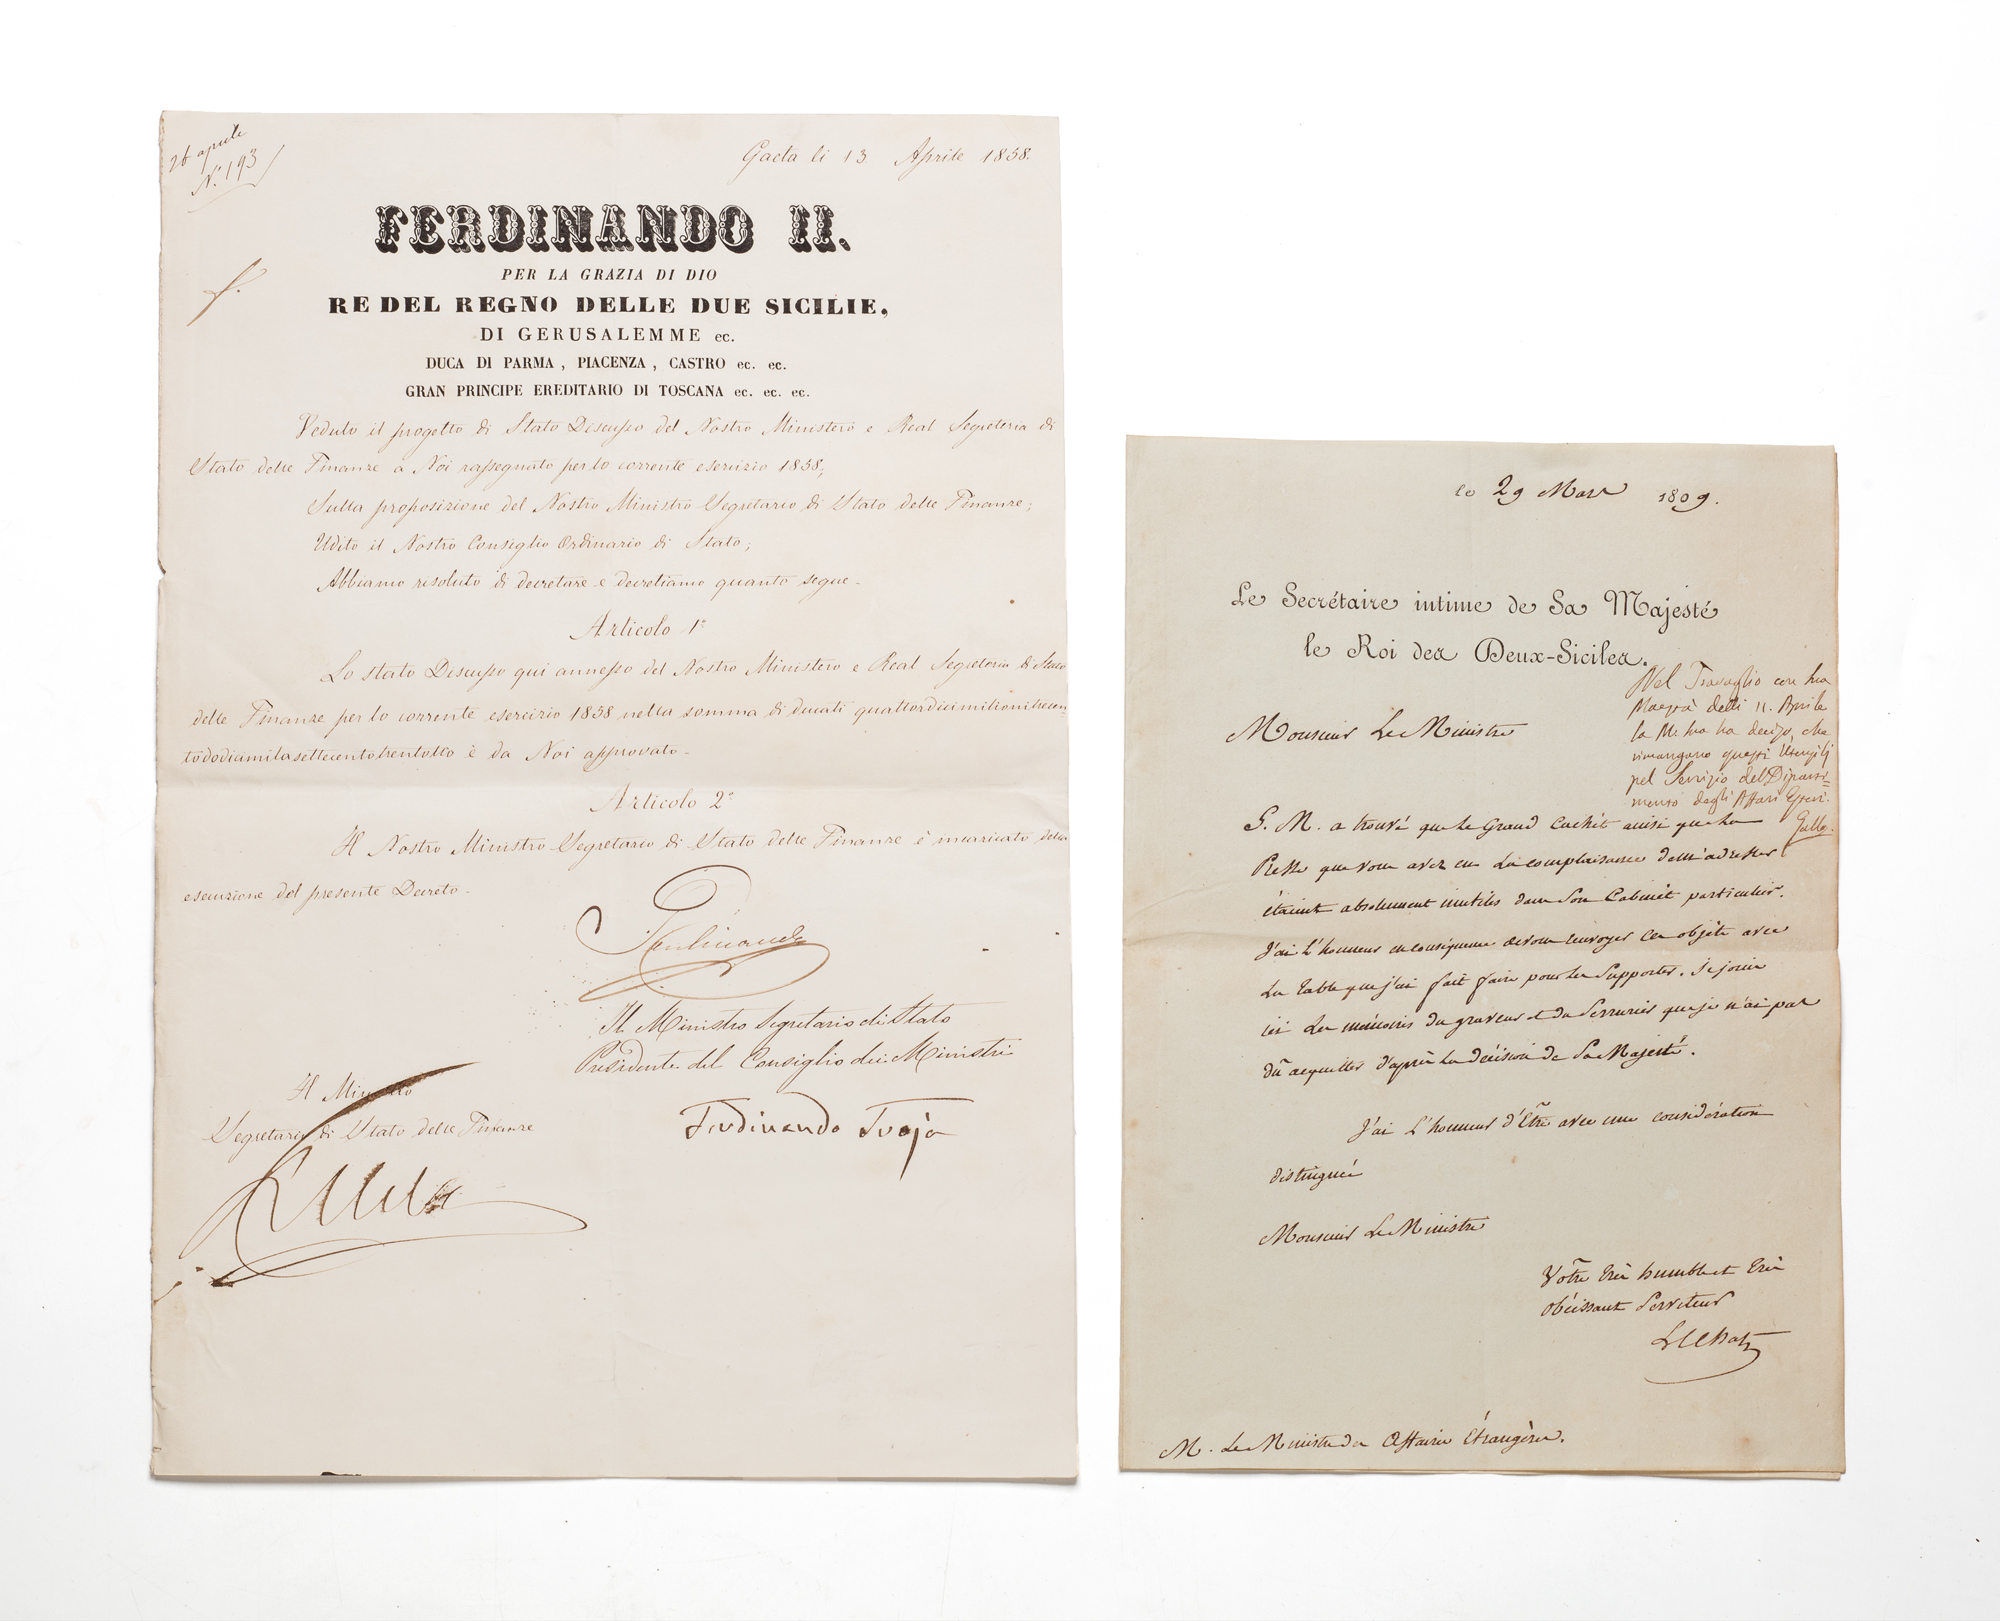 26 aprile
N.° 193
Gaeta li 13 Aprile 1858.
FERDINANDO II.
PER LA GRAZIA DI DIO
RE DEL REGNO DELLE DUE SICILIE,
DI GERUSALEMME ec.
DUCA DI PARMA , PIACENZA , CASTRO ec. ec.
GRAN PRINCIPE EREDITARIO DI TOSCANA ec. ec. ec.
Veduto il progetto di Stato Discusso del Nostro Ministero e Real Segreteria di
Stato delle Finanze a Noi rassegnato per lo corrente esercizio 1858;
Sulla proposizione del Nostro Ministro Segretario di Stato delle Finanze;
Udito il Nostro Consiglio Ordinario di Stato;
Abbiamo risoluto di decretare e decretiamo quanto segue-
Articolo 1°
Lo stato Discusso qui annesso del Nostro Ministero e Real Segreteria di Stato
delle Finanze per lo corrente esercizio 1858 nella somma di ducati quattordicimilionitrecen
tododicimilasettecentotrentotto è da Noi approvato-
Articolo 2°
Il Nostro Ministro Segretario di Stato delle Finanze è incaricato della
esecuzione del presente Decreto-
Ferdinando
Il Ministro Segretario di Stato
Presidente del Consiglio dei Ministri
Ferdinando Troja
Il Ministro
Segretario di Stato delle Finanze
le 29 Mars 1809.
Le Secrétaire intime de Sa Majesté
le Roi des Deux-Siciles.
Nel Travaglio con Sua
Maestà delli 11. Aprile
la M. Sua ha deciso, che
rimangano questi Utensilj
pel Servizio del Diparti=
mento degli Affari Esteri.
Gallo.
Monsieur Le Ministre
S. M. a trouvé que le Grand Cachet ainsi que la
Presse que vous avez eu la complaisance de m'adresser
étaient absolument inutiles dans Son Cabinet particulier.
J'ai l'honneur en conséquence de vous renvoyer ces objets avec
la table que j'ai fait faire pour les supporter. Je joins
ici les mémoires du graveur et du Serrurier que je n'ai pas
dû acquitter d'après la décision de Sa Majesté.
J'ai l'honneur d'être avec une considération
distinguée
Monsieur Le Ministre
Votre très humble et très
obéissant Serviteur
M. Le Ministre des Affaires Étrangères.